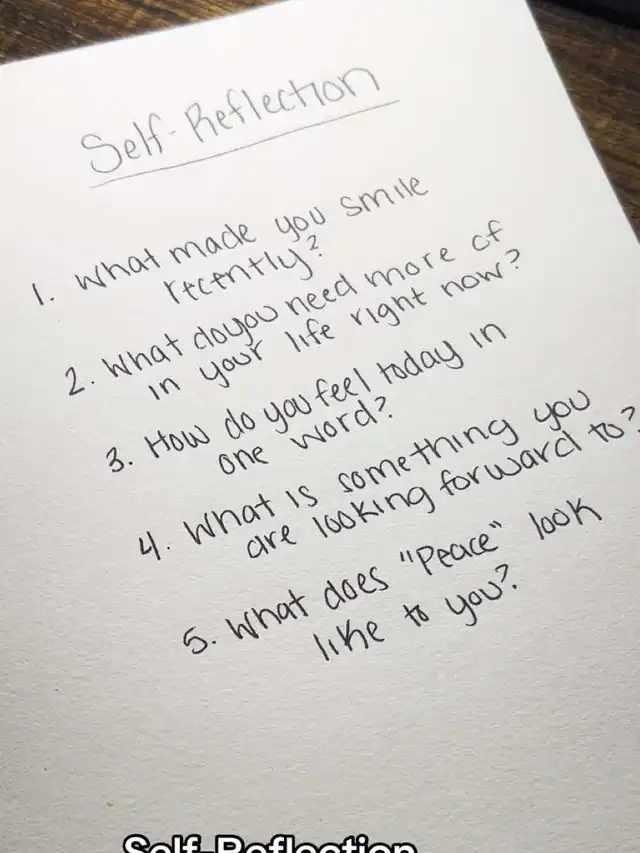 Self-Reflection
1. What made you smile
recently?
2. What do you need more of
in your life right now?
3. How do you feel today in
one word?
4. What is something you
are looking forward to?
5. What does "Peace" look
like to you?
Self-Reflection